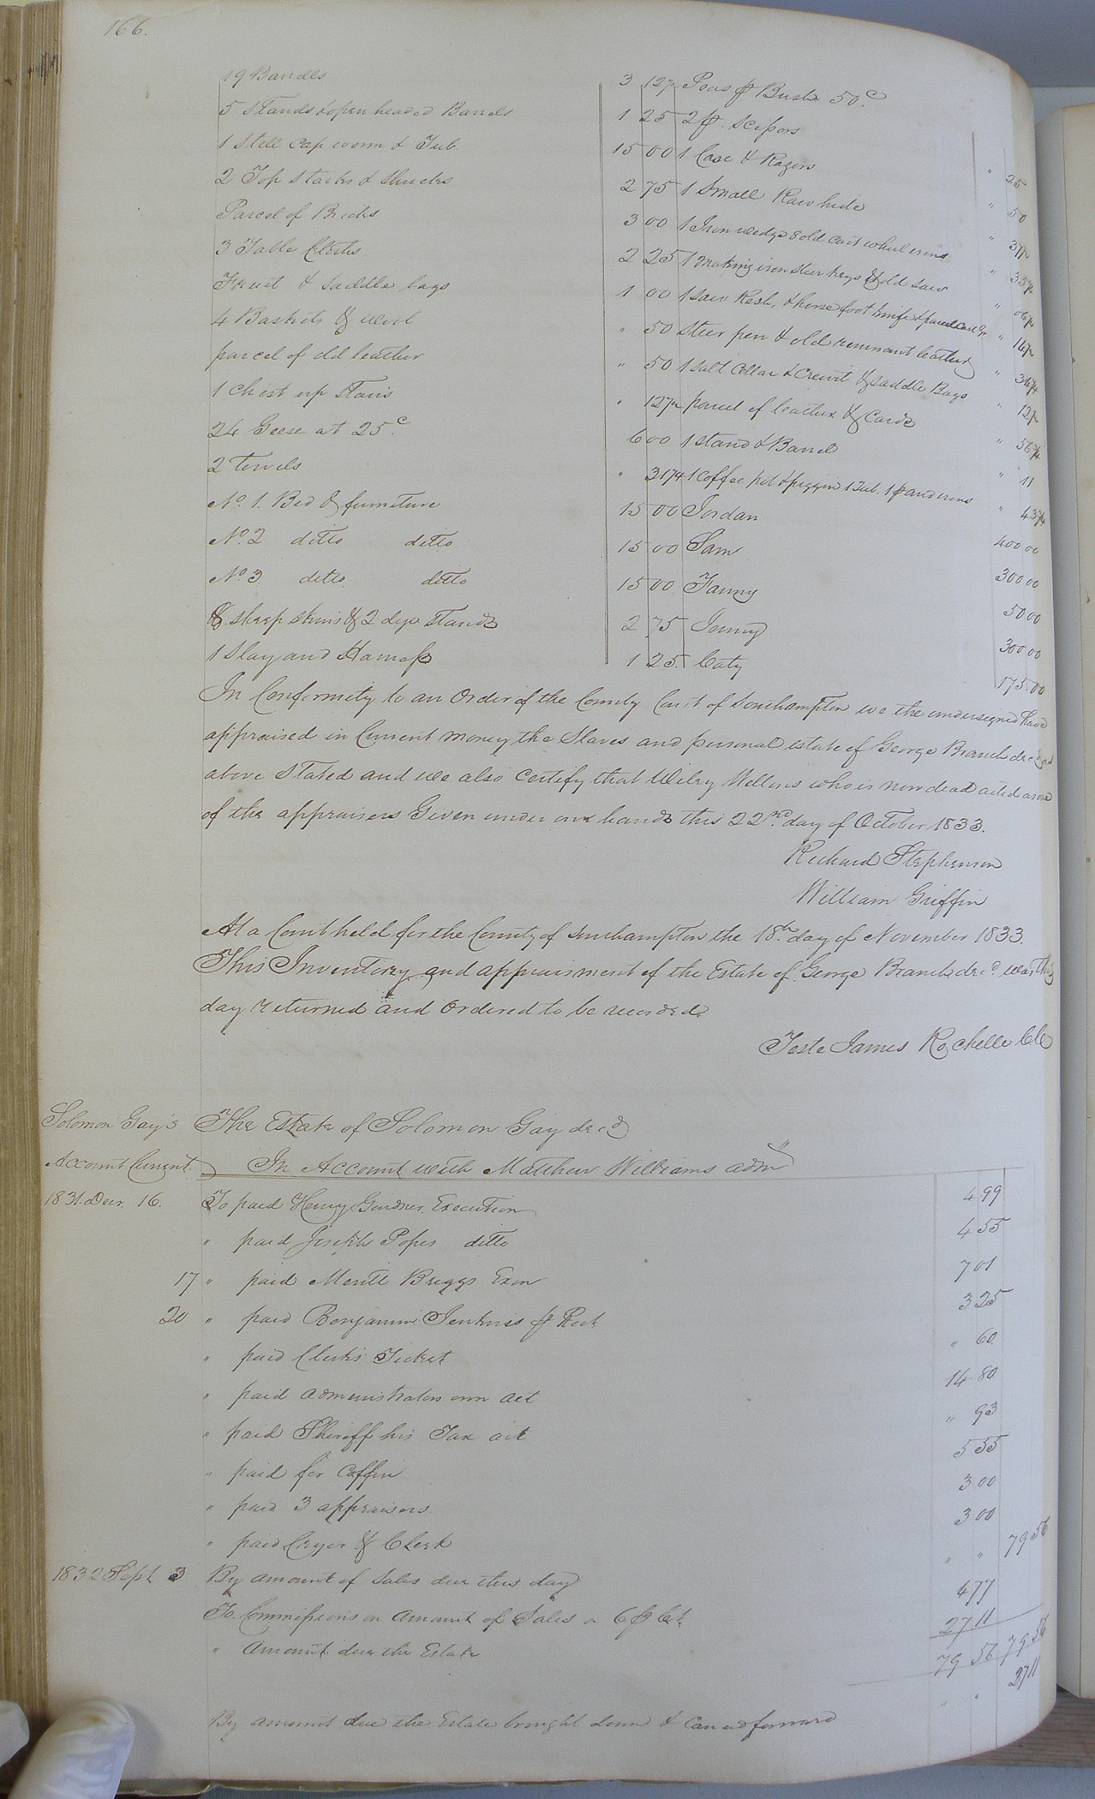 166.
19 Barrels 3 12½
5 Stands & open headed Barrels 1 25
1 Still Cap worm & Tub 15 00
2 Top Stacks & Shucks 2 75
Parcel of Bricks 3 00
3 Table Cloths 2 25
Trunk & Saddle bags 1 00
4 Baskets & Wool " 50
parcel of old leather " 50
1 Chest up Stairs " 12½
24 Geese at 25c. 6 00
2 Towels " 31¼
No. 1. Bed & furniture 15 00
No. 2 ditto ditto 15 00
No. 3 ditto ditto 15 00
8 sheep skins & 2 dye Stands 2 75
1 Slay and Harness 1 25
Peas pr Bush. 50c
2 pr. Scissors " 25
1 Case & Razors " 50
1 Small Raw hide
1 Iron wedge & old Cart wheel irons
1 making iron Steer Keys & old Saw
1 Saw Rest, & horse foot knife &
Steer pen & old remnant leather
1 Salt Cellar & Creuit & Saddle Bags
parcel of leather & Cards
1 Stand & Barrel " 11
1 Coffee pot & piggin 1 Tub. 1 pr andirons
Jordan 400 00
Sam 300 00
Fanny 50 00
Jenny 300 00
Caty 175 00
In Conformity to an Order of the County Court of Southampton we the undersigned have
appraised in Current money the Slaves and personal estate of George Branch decd as
above Stated and we also Certify that Wiley who is now dead acted as one
of the appraisers Given under our hands this 22nd day of October 1833.
Richard Stephenson
William Griffin
At a Court held for the County of Southampton the 18th day of November 1833.
This Inventory and appraisment of the Estate of George Branch decd. was this
day returned and Ordered to be recorded
Teste James Rochelle Clk
Solomon Gay's The Estate of Solomon Gay decd
Account Current In Account with Matthew Williams adm
1831. Decr. 16. To paid Henry Gardner Execution 4 99
" paid Joseph Popes ditto 4 55
17 " paid Merritt Briggs Exon 7 01
20 " paid Benjamin Jenkins pr Rect 3 25
" paid Clerks Ticket " 60
" paid administrators own act 14 80
" paid Sheriff his Tax act " 93
" paid for Coffin 5 55
" paid 3 appraisers 3 00
" paid Cryer & Clerk 3 00
1832 Sept 3 By amount of Sales due this day " " 79 56
To Commissions on Amount of Sales a 6 pr Ct. 4 77
" Amount due the Estate 27 11
79 56 79 56
By amount due the Estate brought down & Carried forward " " 27 11